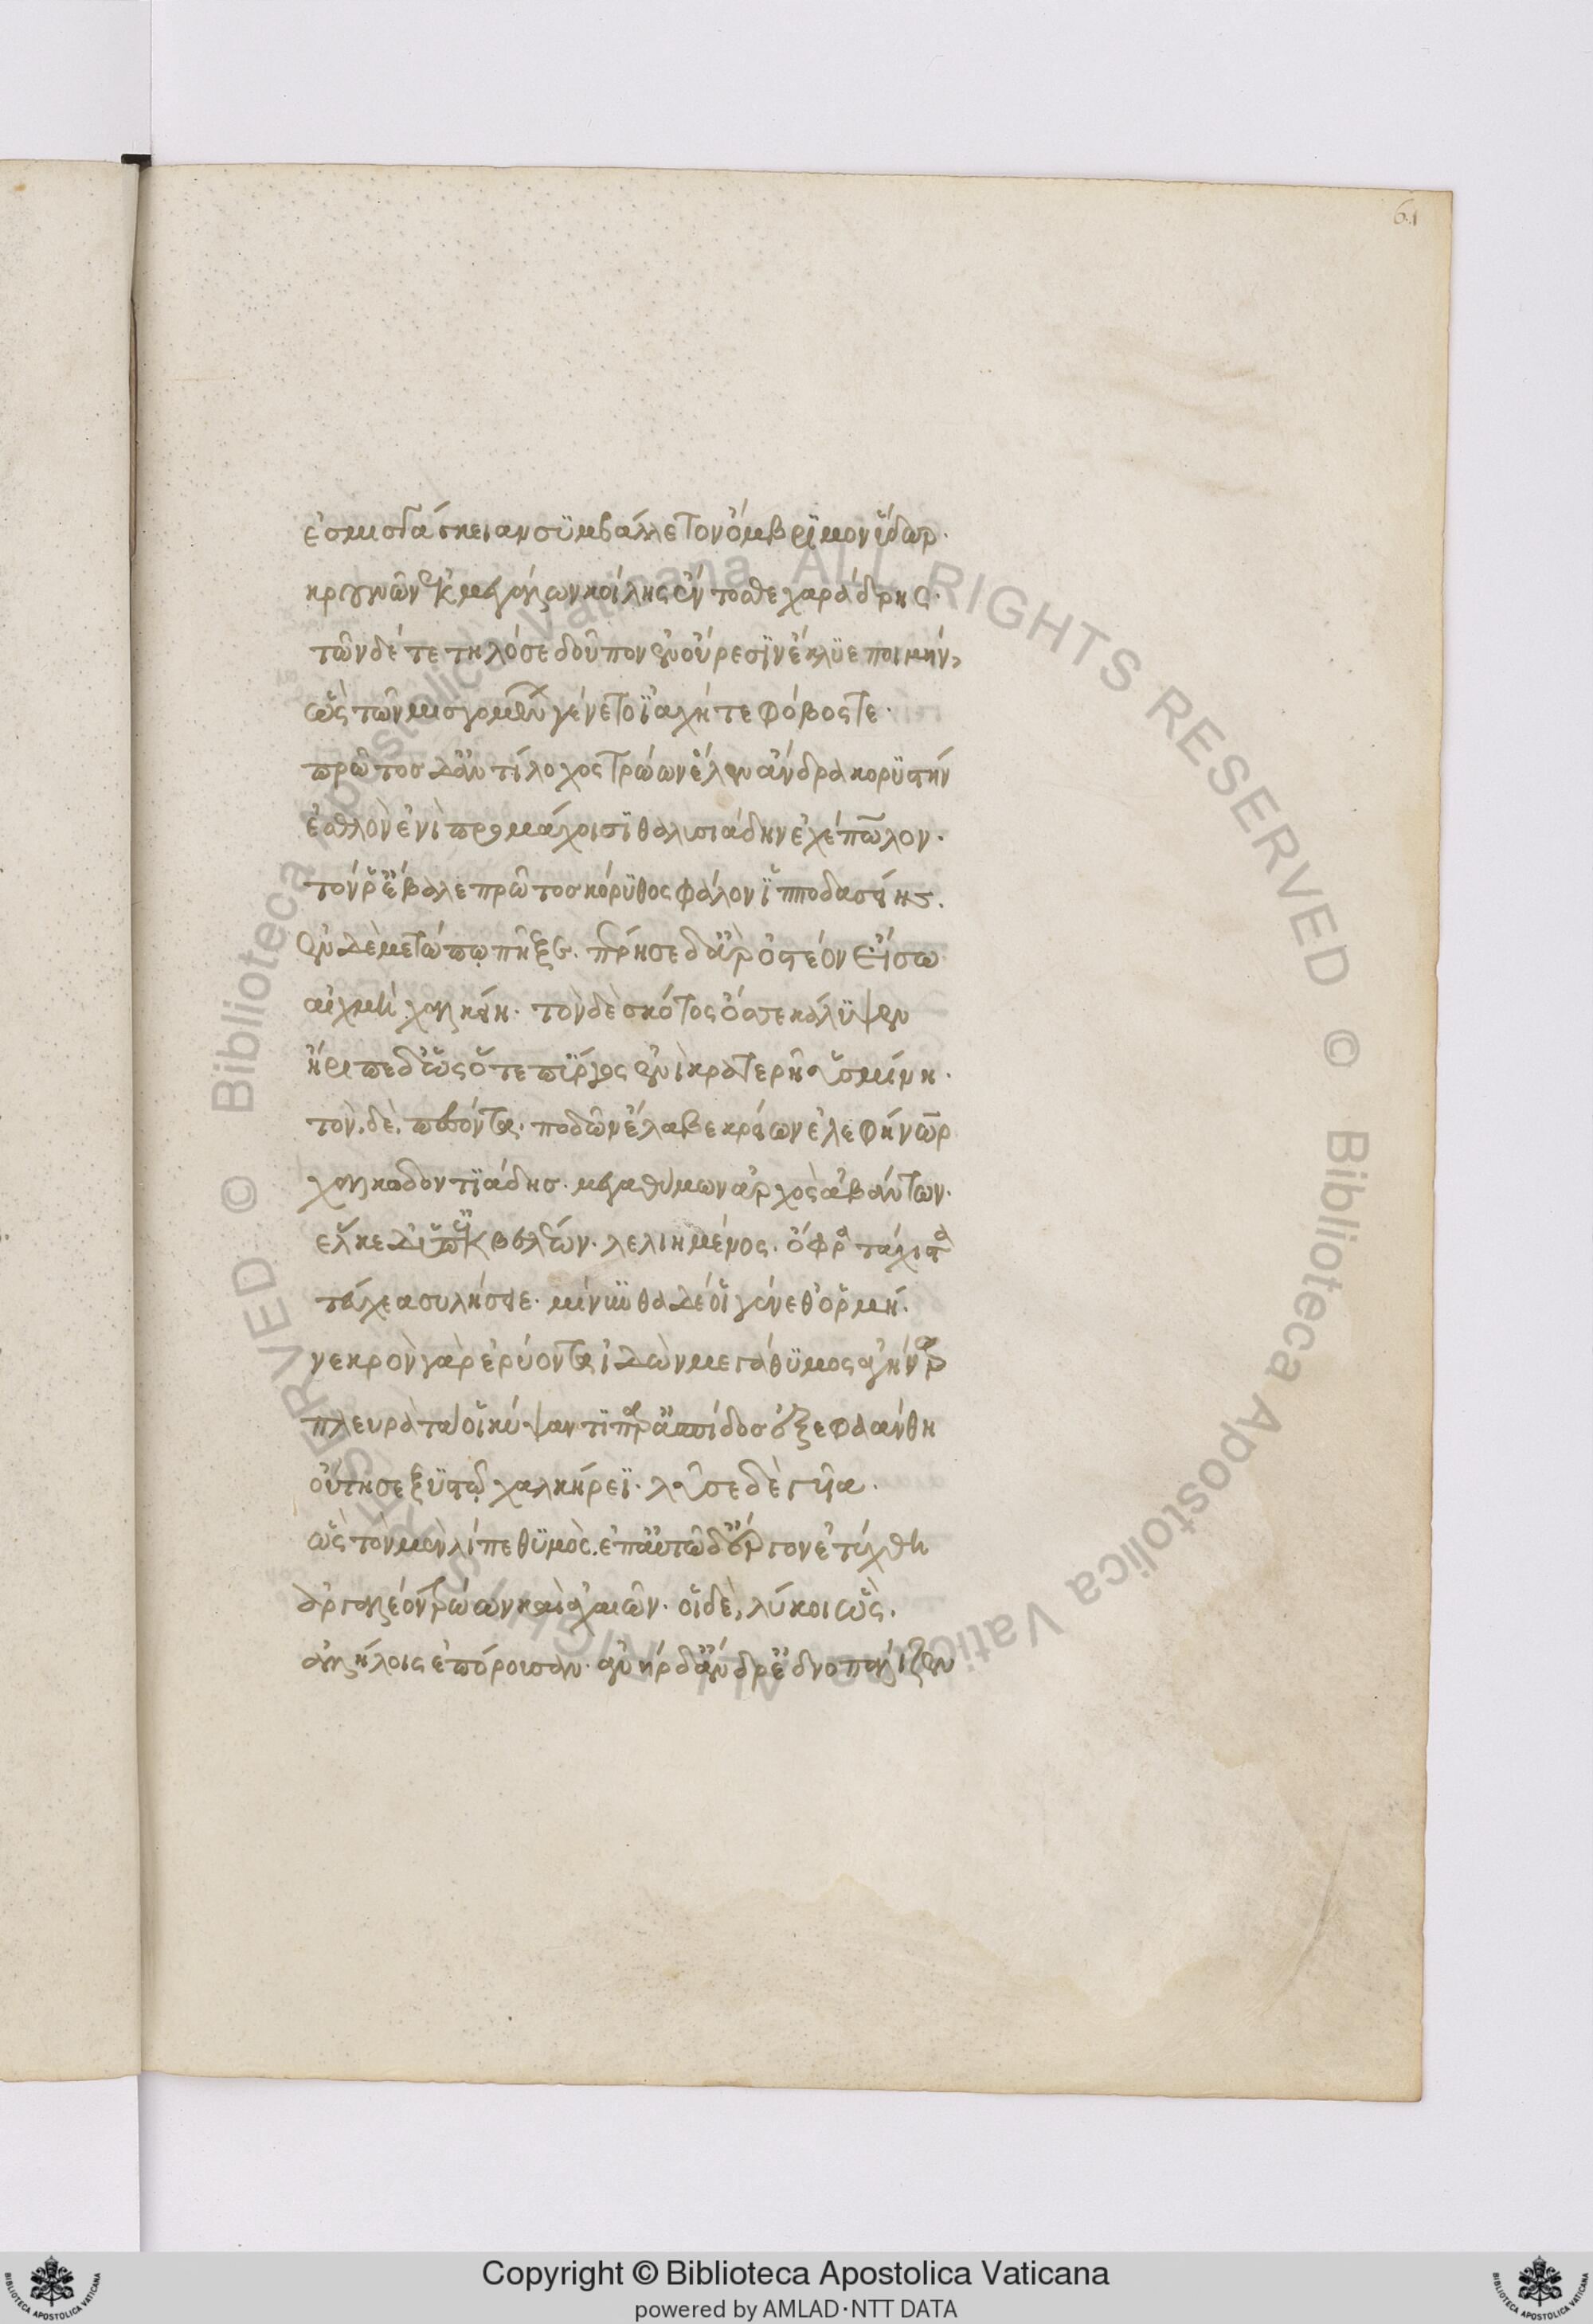 61
ἐς μισγάγκειαν συμβάλλετον ὄμβριμον ὕδωρ·
κρουνῶν ἐκ μεγάλων κοίλης ἔντοσθε χαράδρης·
τῶν δέ τε τηλόσε δοῦπον ἐν οὔρεσϊν ἔκλυε ποιμήν,
ὣς τῶν μισγομένων γένετο ἰαχή τε φόβος τε·
πρῶτος δ' ἀντίλοχος τρώων ἕλεν ἄνδρα κορυστήν
ἐσθλὸν ἐνὶ προμάχοισϊ θαλυσιάδην ἐχέπωλον·
τόν ῥ' ἔβαλε πρῶτος κόρυθος φάλον ἱπποδασείης·
ἐν δὲ μετώπῳ πῆξε· πέρησε δ' ἄρ ὀστέον εἴσω
αἰχμὴ χαλκείη· τὸν δὲ σκότος ὄσσε κάλυψεν
ἤριπε δ' ὡς ὅτε πύργος ἐνὶ κρατερῇ ὑσμίνῃ·
τὸν δὲ πεσόντα ποδῶν ἔλαβε κρείων ἐλεφήνωρ
χαλκωδοντϊάδης· μεγαθύμων ἀρχὸς ἀβάντων·
εἷλκε δ' ὑπ' ἐκ βελέων· λελιημένος· ὄφρα τάχιστα
τεύχεα συλήσειε· μίνυνθα δέ οἱ γένεθ' ὁρμή·
νεκρὸν γὰρ ἐρύοντα ἰδὼν μεγάθυμος ἀγήνωρ
πλευρὰ τά οἱ κύψαντϊ παρ' ἀσπίδος ἐξεφαάνθη
οὔτησε ξυστῷ χαλκήρεϊ· λῦσε δὲ γυῖα·
ὣς τὸν μὲν λίπε θυμὸς· ἐπ' αὐτῶ δ' ἔργον ἐτύχθη
ἀργαλέον τρώων καὶ ἀχαιῶν· οἱ δὲ, λύκοι ὣς·
ἀλλήλοις ἐπόρουσαν· ἀνὴρ δ' ἄνδρ' ἐδνοπάλιζεν
Copyright © Biblioteca Apostolica Vaticana
powered by AMLAD·NTT DATA